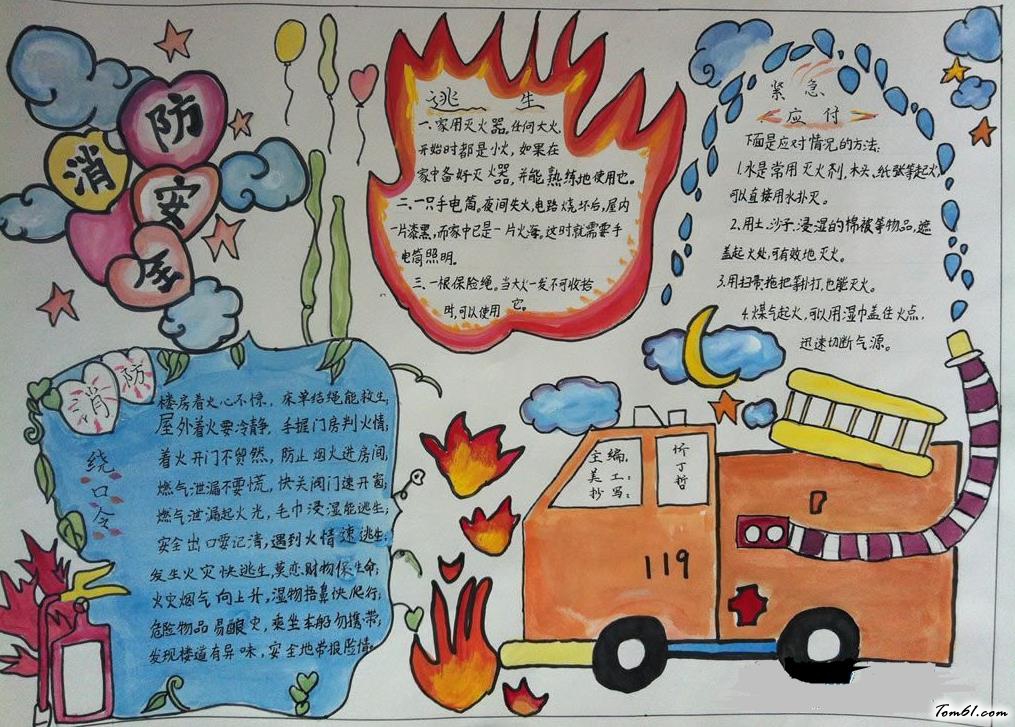 消防
安全
逃生
一、家用灭火器。任何大火,
开始时都是小火,如果在
家中备好灭火器,并能熟练地使用它。
二、一只手电筒。夜间失火,电路烧坏后,屋内
一片漆黑,而家中已是一片火海。这时就需要手
电筒照明。
三、一根保险绳。当大火一发不可收拾
时,可以使用它。
紧急
应付
下面是应对情况的方法:
1.水是常用灭火剂,木头、纸张等起火,
可以直接用水扑灭。
2.用土、沙子、浸湿的棉被等物品,遮
盖起火处,可有效地灭火。
3.用扫帚拖把等扑打,也能灭火。
4.煤气起火,可以用湿巾盖住火点,
迅速切断气源。
消防
绕口令
楼房着火心不惊,床单结绳能救生;
屋外着火要冷静,手握门房判火情;
着火开门不贸然,防止烟火进房间;
燃气泄漏不要慌,快关阀门速开窗;
燃气泄漏起火光,毛巾浸湿能逃生;
安全出口要记清,遇到火情速逃生;
发生火灾快逃生,莫恋财物保生命;
火灾烟气向上升,湿物捂鼻快爬行;
危险物品易酿灾,乘坐车船勿携带;
发现楼道有异味,安全地带报险情。
主编:
美工:
抄写:
丁哲
119
Tom61.com